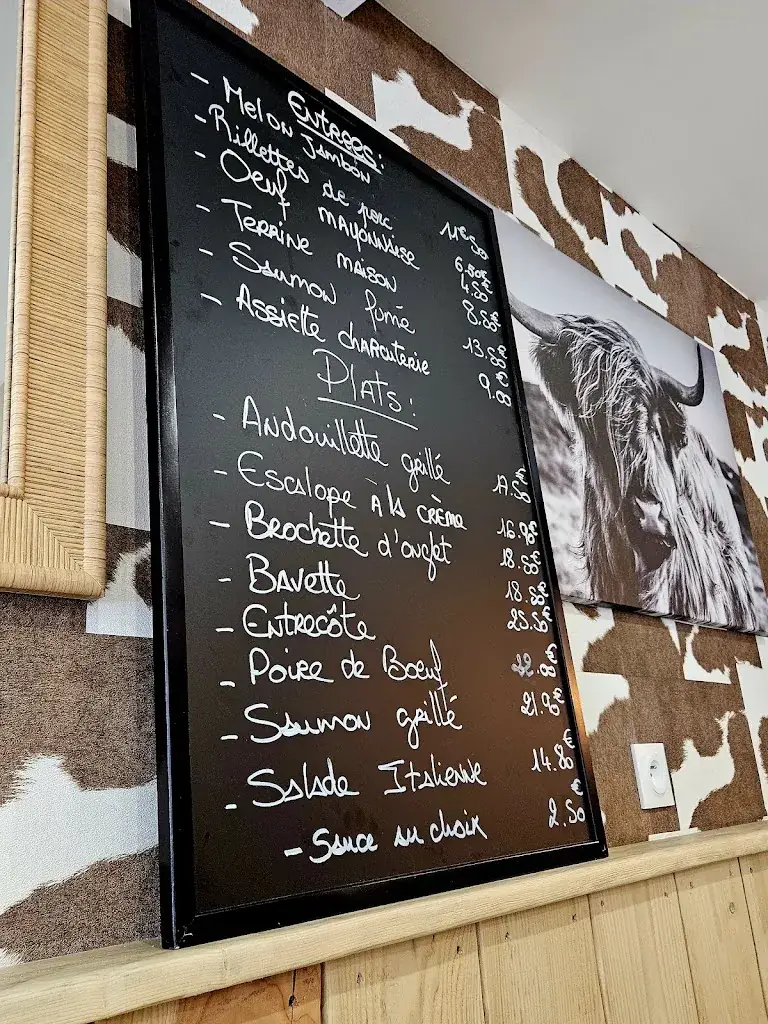 Entrées:
- Melon Jambon 11€50
- Rillettes de porc 6,50€
- Oeuf mayonnaise 4.50€
- Terrine maison 8.50€
- Saumon fumé 13.50€
- Assiette charcuterie 9.00€
Plats:
- Andouillette grillé 17.50€
- Escalope à la crème 16.90€
- Brochette d'onglet 18.50€
- Bavette 18.50€
- Entrecôte 25.50€
- Poire de Boeuf 22.00€
- Saumon grillé 21.90€
- Salade Italienne 14.80€
- Sauce au choix 2.50€